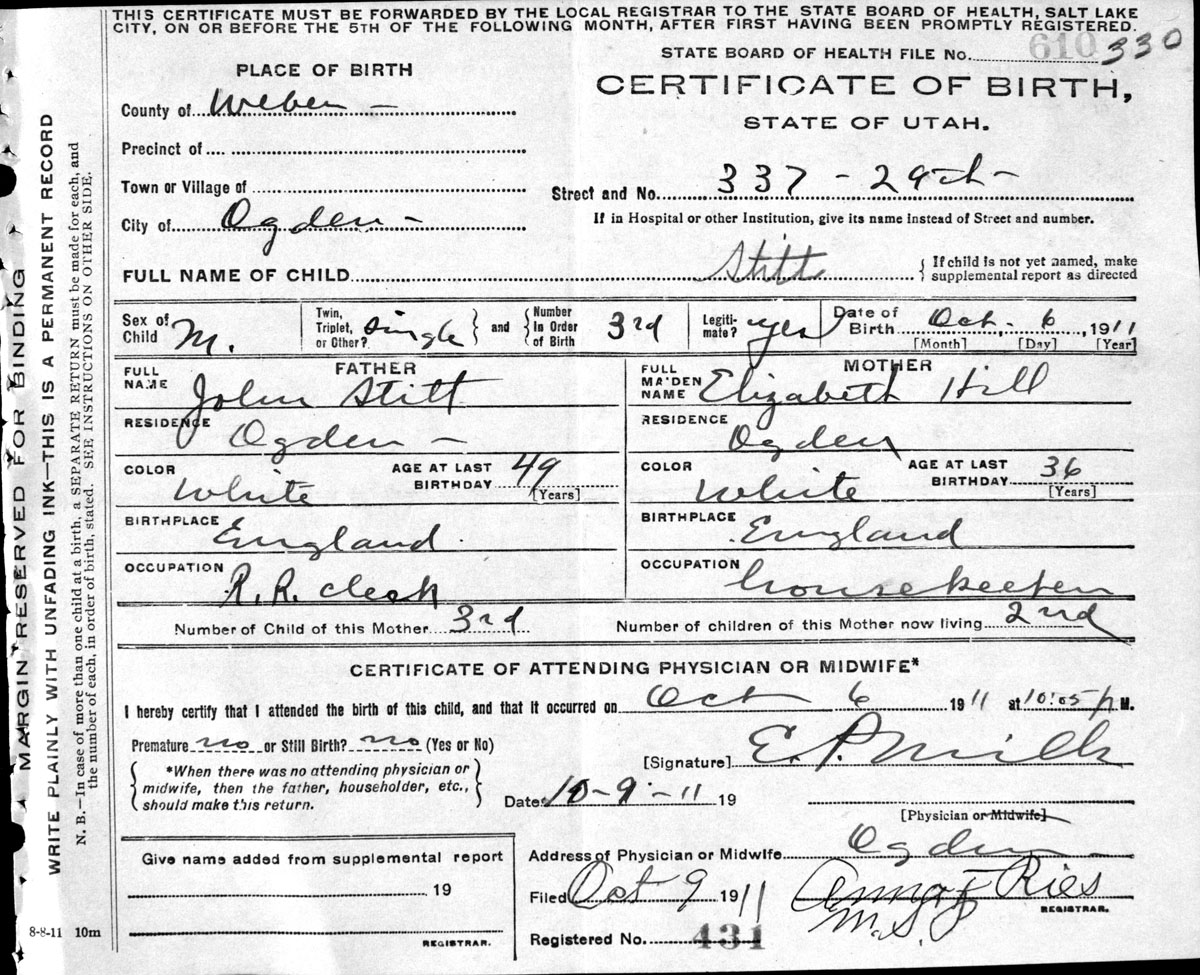 THIS CERTIFICATE MUST BE FORWARDED BY THE LOCAL REGISTRAR TO THE STATE BOARD OF HEALTH, SALT LAKE
CITY, ON OR BEFORE THE 5TH OF THE FOLLOWING MONTH, AFTER FIRST HAVING BEEN PROMPTLY REGISTERED.
STATE BOARD OF HEALTH FILE No. 610 330
PLACE OF BIRTH
CERTIFICATE OF BIRTH,
STATE OF UTAH.
County of Weber -
Precinct of
Town or Village of
Street and No. 337 - 29th -
City of Ogden -
If in Hospital or other Institution, give its name instead of Street and number.
FULL NAME OF CHILD Stitt { If child is not yet named, make
supplemental report as directed
Sex of Child M. Twin, Triplet, or Other? Single } and { Number In Order of Birth 3rd Legiti-mate? yes Date of Birth Oct. 6, 1911
[Month] [Day] [Year]
FATHER
FULL NAME John Stitt
RESIDENCE Ogden -
COLOR White AGE AT LAST BIRTHDAY 49 [Years]
BIRTHPLACE England
OCCUPATION R.R. Clerk
MOTHER
FULL MAIDEN NAME Elizabeth Hill
RESIDENCE Ogden
COLOR White AGE AT LAST BIRTHDAY 36 [Years]
BIRTHPLACE England
OCCUPATION housekeeper
Number of Child of this Mother 3rd Number of children of this Mother now living 2nd
CERTIFICATE OF ATTENDING PHYSICIAN OR MIDWIFE*
I hereby certify that I attended the birth of this child, and that it occurred on Oct 6 1911 at 10:05 P. M.
Premature no or Still Birth? no (Yes or No)
[Signature] E. P. Mills
*When there was no attending physician or
midwife, then the father, householder, etc.,
should make this return.
Date 10-9-11 19
[Physician or Midwife]
Give name added from supplemental report
19
REGISTRAR.
Address of Physician or Midwife Ogden
Filed Oct 9 1911 Anna F Ries
M.S.
REGISTRAR.
Registered No. 431
8-8-11 10m
MARGIN RESERVED FOR BINDING
WRITE PLAINLY WITH UNFADING INK—THIS IS A PERMANENT RECORD
N. B.—In case of more than one child at a birth, a SEPARATE RETURN must be made for each, and
the number of each, in order of birth, stated. SEE INSTRUCTIONS ON OTHER SIDE.